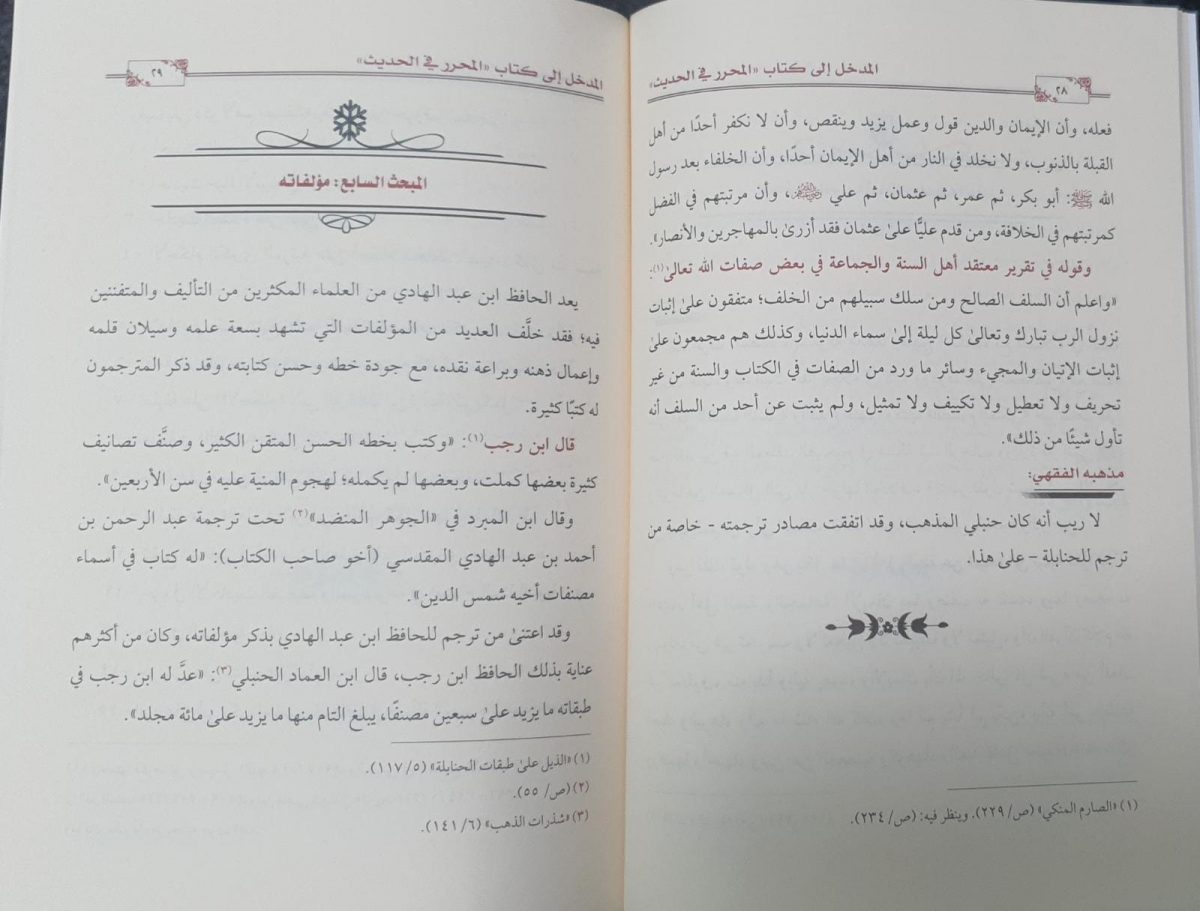 المدخل إلى كتاب «المحرر في الحديث»
٢٨
فعله، وأن الإيمان والدين قول وعمل يزيد وينقص، وأن لا نكفر أحدًا من أهل
القبلة بالذنوب، ولا نخلد في النار من أهل الإيمان أحدًا، وأن الخلفاء بعد رسول
الله ﷺ: أبو بكر، ثم عمر، ثم عثمان، ثم علي، وأن مرتبتهم في الفضل
كمرتبتهم في الخلافة، ومن قدم عليًّا علىٰ عثمان فقد أزرىٰ بالمهاجرين والأنصار».
وقوله في تقرير معتقد أهل السنة والجماعة في بعض صفات الله تعالىٰ(١):
«واعلم أن السلف الصالح ومن سلك سبيلهم من الخلف؛ متفقون علىٰ إثبات
نزول الرب تبارك وتعالىٰ كل ليلة إلىٰ سماء الدنيا، وكذلك هم مجمعون علىٰ
إثبات الإتيان والمجيء وسائر ما ورد من الصفات في الكتاب والسنة من غير
تحريف ولا تعطيل ولا تكييف ولا تمثيل، ولم يثبت عن أحد من السلف أنه
تأول شيئًا من ذلك».
مذهبه الفقهي:
لا ريب أنه كان حنبلي المذهب، وقد اتفقت مصادر ترجمته - خاصة من
ترجم للحنابلة - علىٰ هذا.
(١) «الصارم المنكي» (ص/ ٢٢٩). وينظر فيه: (ص/ ٢٣٤).
المدخل إلى كتاب «المحرر في الحديث»
٢٩
المبحث السابع: مؤلفاته
يعد الحافظ ابن عبد الهادي من العلماء المكثرين من التأليف والمتفننين
فيه؛ فقد خلَّف العديد من المؤلفات التي تشهد بسعة علمه وسيلان قلمه
وإعمال ذهنه وبراعة نقده، مع جودة خطه وحسن كتابته، وقد ذكر المترجمون
له كتبًا كثيرة.
قال ابن رجب(١): «وكتب بخطه الحسن المتقن الكثير، وصنَّف تصانيف
كثيرة بعضها كملت، وبعضها لم يكمله؛ لهجوم المنية عليه في سن الأربعين».
وقال ابن المبرد في «الجوهر المنضد»(٢) تحت ترجمة عبد الرحمن بن
أحمد بن عبد الهادي المقدسي (أخو صاحب الكتاب): «له كتاب في أسماء
مصنفات أخيه شمس الدين».
وقد اعتنىٰ من ترجم للحافظ ابن عبد الهادي بذكر مؤلفاته، وكان من أكثرهم
عناية بذلك الحافظ ابن رجب، قال ابن العماد الحنبلي(٣): «عدَّ له ابن رجب في
طبقاته ما يزيد علىٰ سبعين مصنفًا، يبلغ التام منها ما يزيد علىٰ مائة مجلد».
(١) «الذيل علىٰ طبقات الحنابلة» (٥/ ١١٧).
(٢) (ص/ ٥٥).
(٣) «شذرات الذهب» (٦/ ١٤١).